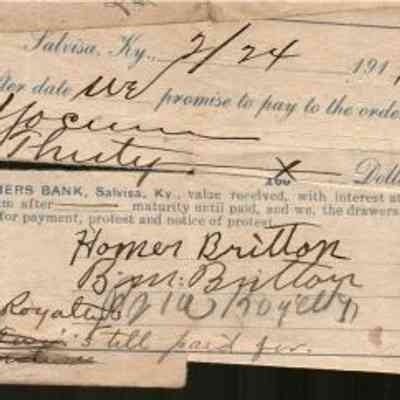 Salvisa, Ky., 2/24 191
ter date we promise to pay to the order
Yocum
Thirty x/100 Dolla
ERS BANK, Salvisa, Ky., value received, with interest at
m after maturity until paid, and we, the drawers
for payment, protest and notice of protest
Homer Britton
B.M. Britton
Royalty
Still paid for.